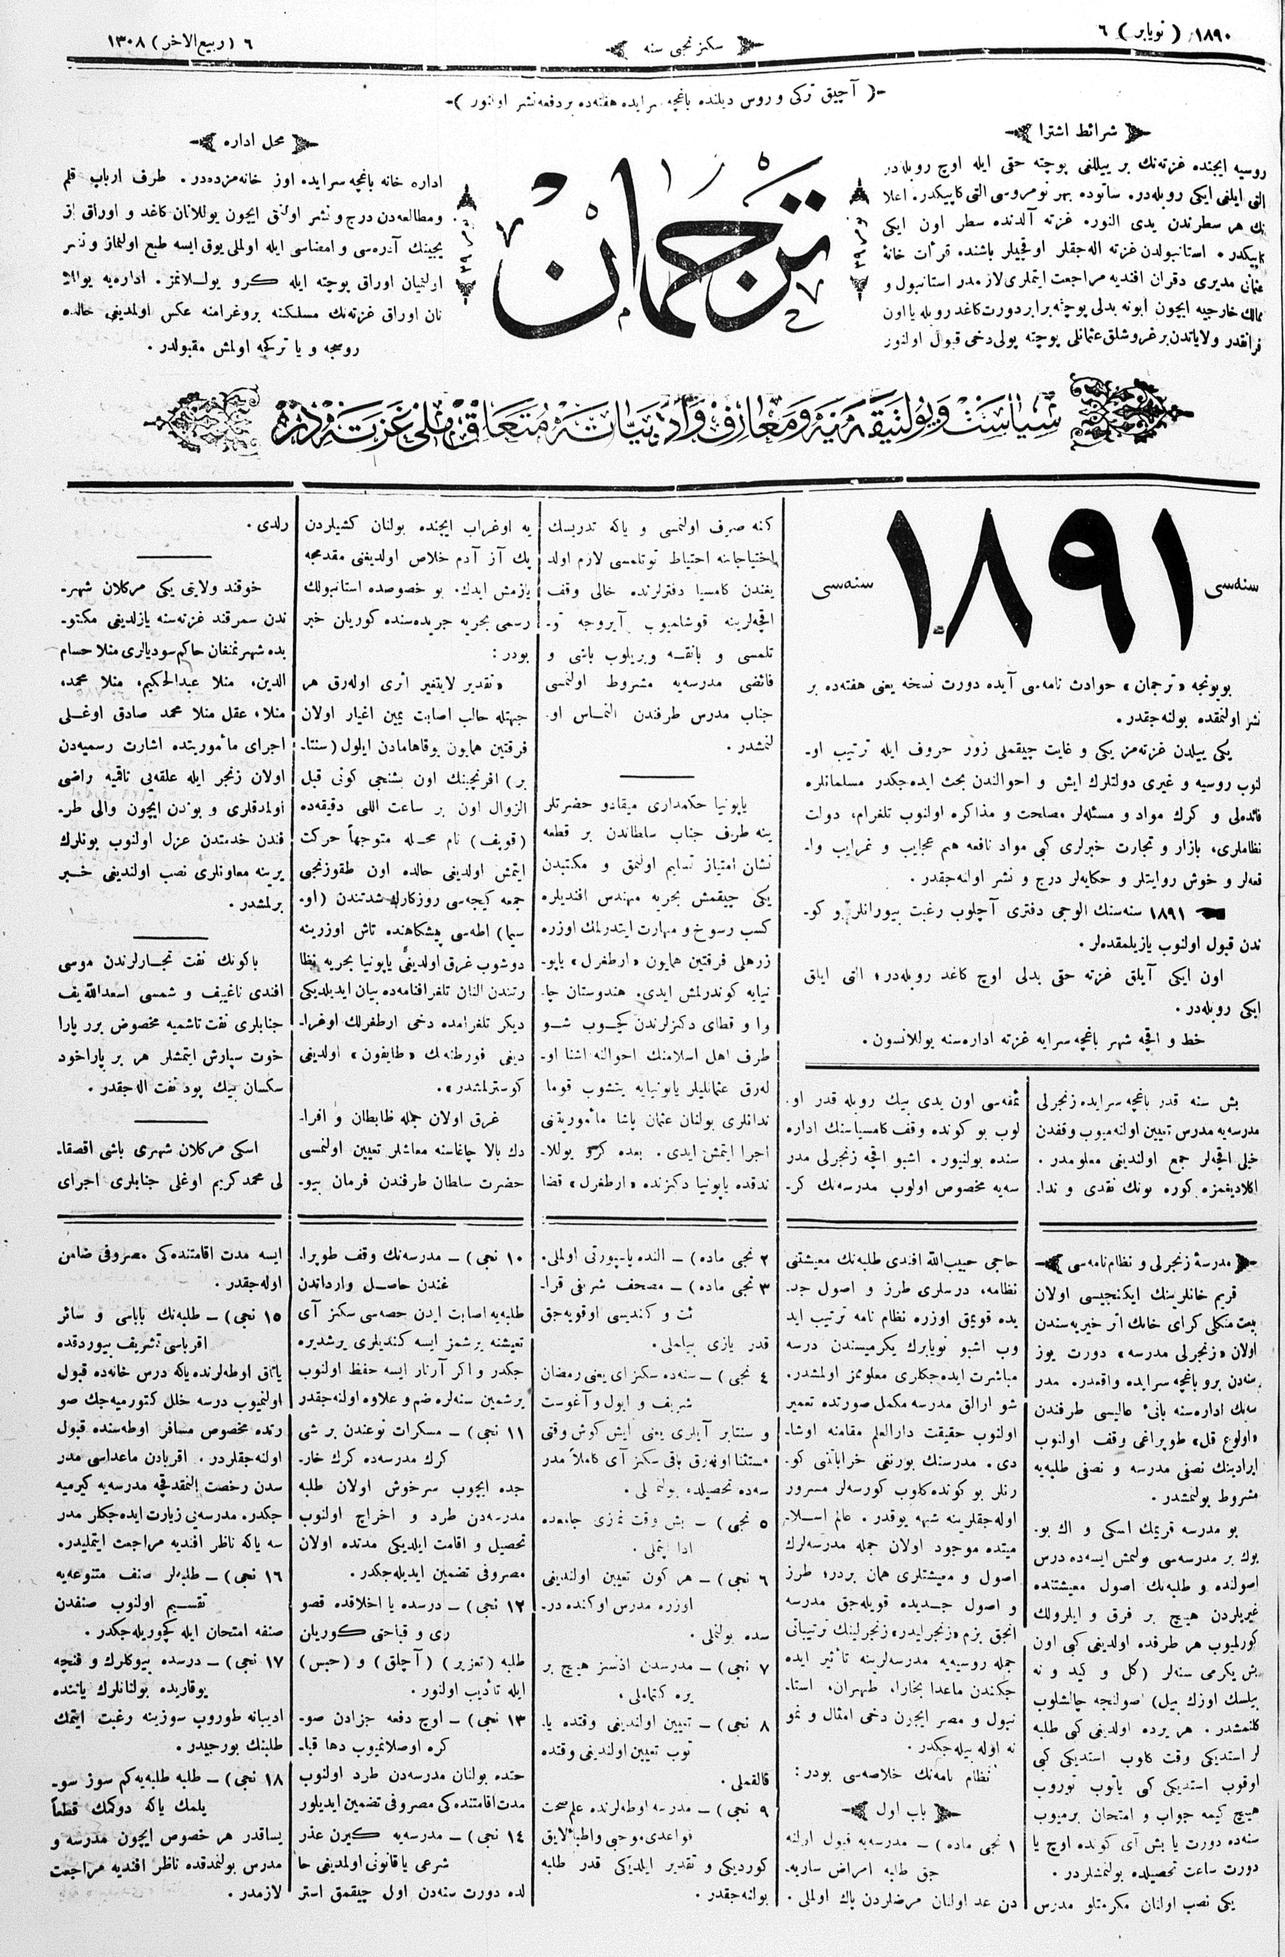 ١٨٩٠ ( نويابر ) ٦
سكزنجى سنه
٦ ( ربيع الاخر ) ١٣٠٨
-( آچيق تركى و روس ديلنده باغچه سرايده هفته ده بر دفعه نشر اولنور )-
شرائط اشترا
روسيه ايچنده غزته نك بر ييللغى پوچته حقى ايله اوچ روبله در
التى ايلغى ايكى روبله در. ساتوده بهر نومروسى التى كاپيكدر. اعلا
نك هر سطرندن يدى النور. غزته آلدنده سطر اون ايكى
كاپيكدر. استانبولدن غزته اله جقلر اوقچيلر باشنده قرأت خانهٔ
عثمانى مديرى دقران افنديه مراجعت ايتملرى لازمدر استانبول و
ممالك خارجيه ايچون ابونه بدلى پوچته برابر دورت كاغد روبله يا اون
فرانقدر ولاياتدن بر غروشلق عثمانلى پوچته پولى دخى قبول اولنور
ترجمان
محل اداره
اداره خانه باغچه سرايده اوز خانه مزده در. طرف ارباب قلم
و مطالعه دن درج و نشر اولنق ايچون يوللانان كاغد و اوراق از
يجينك آدره سى و امضاسى ايله اولملى يوق ايسه طبع اولنماز و نشر
اولنميان اوراق پوچته ايله كرو يوللانمز. اداره يه يوللا
نان اوراق غزته نك مسلكنه پروغرامنه عكس اولمديغى حالده
روسجه و يا تركجه اولمش مقبولدر.
سياست و پولتيقه مدنيه و معارف و ادبياته متعلق ملى غزته در
سنه سى ١٨٩١ سنه سى
بويونجه «ترجمان» حوادث نامه سى آيده دورت نسخه يعنى هفته ده بر
نشر اولنمقده بولنه جقدر.
يكى ييلدن غزته مز يكى و غايت چيقملى زور حروف ايله ترتيب او-
لنوب روسيه و غيرى دولتلرك ايش و احوالندن بحث ايده جكدر مسلمانلره
فائده لى و كرك مواد و مسئله لر مصلحت و مذاكره اولنوب تلغرام، دولت
نظاملرى، بازار و تجارت خبرلرى كبى مواد نافعه هم عجايب و غرايب وا-
قعه لر و خوش روايتلر و حكايه لر درج و نشر اولنه جقدر.
١٨٩١ سنه سنك الوجى دفترى آچلوب رغبت بيورانلر و كو-
ندن قبول اولنوب يازيلمقده لر.
اون ايكى آيلق غزته حقى بدلى اوچ كاغد روبله در؛ التى ايلق
ايكى روبله در.
خط و اقچه شهر باغچه سرايه غزته اداره سنه يوللانسون.
بش سنه قدر باغچه سرايده زنجرلى
مدرسه يه مدرس تعيين اولنه ميوب وقفدن
خيلى اقچه لر جمع اولنديغى معلومدر.
اكلاديغمزه كوره بونك نقدى و ندا-
ثمفه سى اون يدى بيك روبله قدر او-
لوب بو كونده وقف كامسياسنك اداره
سنده بولنيور. اشبو اقچه زنجرلى مدر
سه يه مخصوص اولوب مدرسه نك كر-
كنه صرف اولنمسى و ياكه تدريسك
احتياجاتنه احتياط توتلمسى لازم اولد
يغندن كامسيا دفترلرنده خالى وقف
اقچه لرينه قوشلميوب آيروجه تو-
تلمسى و بانقه ويريلوب باشى و
فائضى مدرسه يه مشروط اولنمسى
جناب مدرس طرفندن التماس او
لنمشدر.
ياپونيا حكمدارى ميقادو حضرتلر
ينه طرف جناب سلطاندن بر قطعه
نشان امتياز تسليم اولنمق و مكتبدن
يكى چيقمش بحريه مهندس افنديلره
كسب رسوخ و مهارت ايتدرلمك اوزره
زرهلى فرقتين همايون «ارطغرل» ياپو-
نيايه كوندرلمش ايدى. هندوستان جا-
وا و قطاى دكزلرندن كچوب شو
طرف اهل اسلامنك احوالنه اشنا او-
له رق عثمانليلر ياپونيايه يتشوب قوما
ندانلرى بولنان عثمان پاشا مأموريتنى
اجرا ايتمش ايدى. بعده كرو يوللا-
ندقده ياپونيا دكزنده «ارطغرل» قضا
يه اوغراب ايچنده بولنان كشيلردن
پك آز آدم خلاص اولديغنى مقدمجه
يازمش ايدك. بو خصوصده استانبولك
رسمى بحريه جريده سنده كوريلن خبر
بودر:
«تقدير لايتغير اثرى اوله رق هر
جهتله جالب اصابت يمين اغيار اولان
فرقتين همايون بوقاهامادن ايلول (سنتا-
بر) افرنجينك اون بشنجى كونى قبل
الزوال اون بر ساعت اللى دقيقه ده
(قوبه) نام محله متوجهاً حركت
ايتمش اولديغى حالده اون طقوزنجى
جمعه كيجه سى روزكارك شدتندن (او-
سيما) اطه سى پيشكاهنده تاش اوزرينه
دوشوب غرق اولديغى ياپونيا بحريه نظا
رتندن النان تلغرافنامه ده بيان ايديلديكى
ديكر تلغرامده دخى ارطغرلك اوغرا-
ديغى فورطنه نك «طايفون» اولديغى
كوسترلمشدر».
غرق اولان جمله ظابطان و افرا-
دك بالا چاغاسنه معاشلر تعيين اولنمسى
حضرت سلطان طرفندن فرمان بيو-
رلدى.
خوقند ولايتى يكى مركلان شهر-
ندن سمرقند غزته سنه يازلديغى مكتو-
بده شهر نمنغان حاكم سوديالرى منلا حسام
الدين، منلا عبدالحكيم، منلا محمد،
منلا، عقل منلا محمد صادق اوغلى
اجراى مأموريتده اشارت رسميه دن
اولان زنجر ايله علقه يى ناقميه راضى
اولمدقلرى و بوندن ايچون والى طر-
فندن خدمتدن عزل اولنوب بونلرك
يرينه معاونلرى نصب اولنديغى خبر
برلمشدر.
باكونك نفت تجارلرندن موسى
افندى ناغييف و شمسى اسعدالله يف
جنابلرى نفت تاشميه مخصوص برر پارا
خوت سپارش ايتمشلر هر بر پاراخود
سكسان بيك پود نفت اله جقدر.
اسكى مركلان شهرى باشى اقصقا-
لى محمد كريم اوغلى جنابلرى اجراى
مدرسهٔ زنجرلى و نظام نامه سى
قريم خانلرينك ايكنجيسى اولان
بيت منكلى كراى خانك اثر خيريه سندن
اولان «زنجرلى مدرسه» دورت يوز
سنه دن برو باغچه سرايده واقعدر. مدر
سه نك اداره سنه بانىٔ عاليسى طرفندن
«اولوغ قل» طوپراغى وقف اولنوب
ايرادينك نصفى مدرسه و نصفى طلبه يه
مشروط بولنمشدر.
بو مدرسه قريمك اسكى و اك بو-
يوك بر مدرسه سى بولنمش ايسه ده درس
اصولنده و طلبه نك اصول معيشتنده
غيريلردن هيچ بر فرق و ايلرولك
كورلميوب هر طرفده اولديغى كبى اون
بش يكرمى سنه لر (كل و كيد و نه
بيلسك اوزك بيل) صولنجه چالشلوب
كلنمشدر. هر يرده اولديغى كبى طلبه
لر استديكى وقت كلوب استديكى كبى
اوقوب استديكى كبى ياتوب توروب
هيچ كيمه جواب و امتحان برميوب
سنه ده دورت يا بش آى كونده اوچ يا
دورت ساعت تحصيلده بولنمشلردر.
يكى نصب اولنان مكرمتلو مدرس
حاجى حبيب الله افندى طلبه نك معيشتنى
نظامه، درسلرى طرز و اصول جد-
يده قويمق اوزره نظام نامه ترتيب ايد
وب اشبو نويابرك يكرميسندن درسه
مباشرت ايده جكلرى معلوممز اولمشدر.
شو ارالق مدرسه مكمل صورتده تعمير
اولنوب حقيقت دارالعلم مقامنه اوشا-
دى. مدرسنك بورنغى خراباتنى كو-
رنلر بو كونده كلوب كورسه لر مسرور
اوله جقلرينه شبهه يوقدر. عالم اسلا-
ميتده موجود اولان جمله مدرسه لرك
اصول و معيشتلرى همان بردر؛ طرز
و اصول جديده قويله جق مدرسه
انجق بزم «زنجرليدر» زنجرلينك ترتيباتى
جمله روسيه يه مدرسه لرينه تأثير ايده
جكندن ماعدا بخارا، طهران، استا-
نبول و مصر ايچون دخى امثال و نمو
نه اوله بيله جكدر.
نظام نامه نك خلاصه سى بودر:
باب اول
١ نجى ماده) – مدرسه يه قبول اولنه
جق طلبه امراض ساريه-
دن عد اولنان مرضلردن پاك اولملى.
٢ نجى ماده) – النده پاسپورتى اولملى.
٣ نجى ماده) – مصحف شريفى قرا-
ئت و كنديسى اوقويه جق
قدر يازى بيلملى.
٤ نجى) – سنه ده سكز آى يعنى رمضان
شريف و ايول و آغوست
و سنتابر آيلرى يعنى ايش كوش وقتى
مستثنا اوله رق باقى سكز آى كاملاً مدر
سه ده تحصيلده بولنملى.
٥ نجى) – بش وقت نمازى جامعده
ادا ايتملى.
٦ نجى) – هر كون تعيين اولنديغى
اوزره مدرس اوكنده در-
سده بولنملى.
٧ نجى) – مدرسدن اذنسز هيچ بر
يره كتماملى.
٨ نجى) – تعيين اولنديغى وقتده يا-
توب تعيين اولنديغى وقتده
قالقملى.
٩ نجى) – مدرسه اوطه لرنده علم صحت
قواعدى موجبى و اطبا لايق
كورديكى و تقدير ايلديكى قدر طلبه
بولنه جقدر.
١٠ نجى) – مدرسه نك وقف طوپرا-
غندن حاصل وارداتدن
طلبه يه اصابت ايدن حصه سى سكز آى
تعيشنه يرشمز ايسه كنديلرى يرشديره
جكدر و اكر آرتار ايسه حفظ اولنوب
يرشمين سنه لره ضم و علاوه اولنه جقدر
١١ نجى) – مسكرات نوعندن بر شى
كرك مدرسه ده كرك خار-
جده ايچوب سرخوش اولان طلبه
مدرسه دن طرد و اخراج اولنوب
تحصيل و اقامت ايلديكى مدتده اولان
مصروفى تضمين ايديله جكدر.
١٢ نجى) – درسده يا اخلاقده قصو
رى و قباحتى كوريلن
طلبه (تعزير) (آچلق) و (حبس)
ايله تأديب اولنور.
١٣ نجى) – اوچ دفعه جزادن صو-
كره اوصلانميوب دها قبا-
حتده بولنان مدرسه دن طرد اولنوب
مدت اقامتنده كى مصروفى تضمين ايديلور
١٤ نجى) – مدرسه يه كيرن عذر
شرعى يا قانونى اولمديغى حا
لده دورت سنه دن اول چيقمق استر
ايسه مدت اقامتنده كى مصروفى ضامن
اوله جقدر.
١٥ نجى) – طلبه نك باباسى و سائر
اقرباسى تشريف بيوردقده
ياتاق اوطه لرنده ياكه درس خانه ده قبول
اولنميوب درسه خلل كتورميه جك صو
رتده مخصوص مسافر اوطه سنده قبول
اولنه جقلردر. اقربادن ماعداسى مدر
سدن رخصت النمقدقچه مدرسه يه كيرميه
جكدر. مدرسه يى زيارت ايده جكلر مدر
سه يا كه ناظر افنديه مراجعت ايتمليدر.
١٦ نجى) – طلبه لر صنف متنوعه يه
تقسيم اولنوب صنفدن
صنفه امتحان ايله كچوريله جكدر.
١٧ نجى) – درسده بيوكلرك و قنچه
يوقاريده بولنانلرك ياننده
اديبانه طوروب سوزينه رغبت ايتمك
طلبه نك بورجيدر.
١٨ نجى) – طلبه طلبه يه كم سوز سو-
يلمك ياكه دوكمك قطعاً
يساقدر هر خصوص ايچون مدرسه و
مدرس بولنمدقده ناظر افنديه مراجعت
لازمدر.